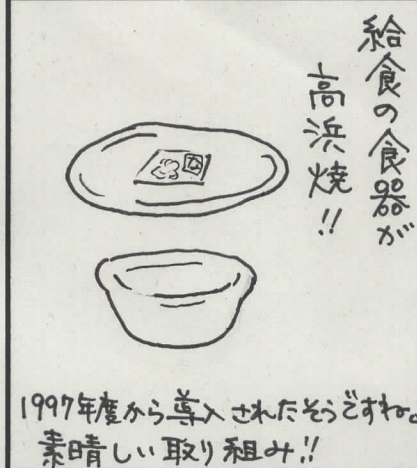 給食の食器が
高浜焼!!
1997年度から導入されたそうですね。
素晴しい取り組み!!